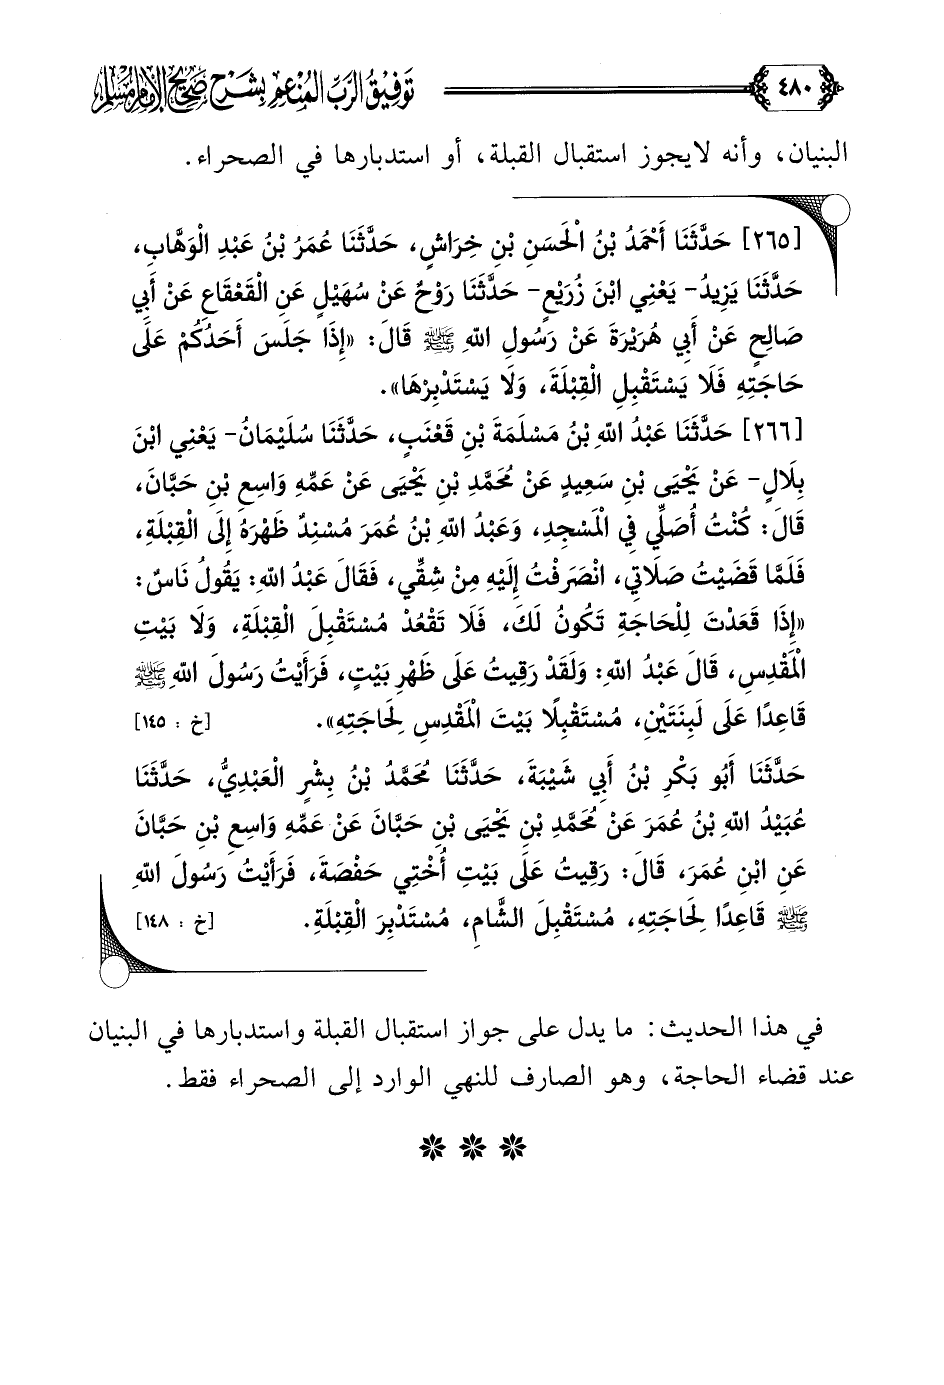 ٤٨٠
توفيق الرب المنعم بشرح صحيح الإمام مسلم
البنيان، وأنه لا يجوز استقبال القبلة، أو استدبارها في الصحراء.
[٢٦٥] حَدَّثَنَا أَحْمَدُ بْنُ الْحَسَنِ بْنِ خِرَاشٍ، حَدَّثَنَا عُمَرُ بْنُ عَبْدِ الْوَهَّابِ،
حَدَّثَنَا يَزِيدُ- يَعْنِي ابْنَ زُرَيْعٍ- حَدَّثَنَا رَوْحٌ عَنْ سُهَيْلٍ عَنِ الْقَعْقَاعِ عَنْ أَبِي
صَالِحٍ عَنْ أَبِي هُرَيْرَةَ عَنْ رَسُولِ اللهِ ﷺ قَالَ: «إِذَا جَلَسَ أَحَدُكُمْ عَلَى
حَاجَتِهِ فَلَا يَسْتَقْبِلِ الْقِبْلَةَ، وَلَا يَسْتَدْبِرْهَا».
[٢٦٦] حَدَّثَنَا عَبْدُ اللهِ بْنُ مَسْلَمَةَ بْنِ قَعْنَبٍ، حَدَّثَنَا سُلَيْمَانُ- يَعْنِي ابْنَ
بِلَالٍ- عَنْ يَحْيَى بْنِ سَعِيدٍ عَنْ مُحَمَّدِ بْنِ يَحْيَى عَنْ عَمِّهِ وَاسِعِ بْنِ حَبَّانَ،
قَالَ: كُنْتُ أُصَلِّي فِي الْمَسْجِدِ، وَعَبْدُ اللهِ بْنُ عُمَرَ مُسْنِدٌ ظَهْرَهُ إِلَى الْقِبْلَةِ،
فَلَمَّا قَضَيْتُ صَلَاتِي، انْصَرَفْتُ إِلَيْهِ مِنْ شِقِّي، فَقَالَ عَبْدُ اللهِ: يَقُولُ نَاسٌ:
«إِذَا قَعَدْتَ لِلْحَاجَةِ تَكُونُ لَكَ، فَلَا تَقْعُدْ مُسْتَقْبِلَ الْقِبْلَةِ، وَلَا بَيْتِ
الْمَقْدِسِ، قَالَ عَبْدُ اللهِ: وَلَقَدْ رَقِيتُ عَلَى ظَهْرِ بَيْتٍ، فَرَأَيْتُ رَسُولَ اللهِ ﷺ
قَاعِدًا عَلَى لَبِنَتَيْنِ، مُسْتَقْبِلًا بَيْتَ الْمَقْدِسِ لِحَاجَتِهِ». [خ : ١٤٥]
حَدَّثَنَا أَبُو بَكْرِ بْنُ أَبِي شَيْبَةَ، حَدَّثَنَا مُحَمَّدُ بْنُ بِشْرٍ الْعَبْدِيُّ، حَدَّثَنَا
عُبَيْدُ اللهِ بْنُ عُمَرَ عَنْ مُحَمَّدِ بْنِ يَحْيَى بْنِ حَبَّانَ عَنْ عَمِّهِ وَاسِعِ بْنِ حَبَّانَ
عَنِ ابْنِ عُمَرَ، قَالَ: رَقِيتُ عَلَى بَيْتِ أُخْتِي حَفْصَةَ، فَرَأَيْتُ رَسُولَ اللهِ
ﷺ قَاعِدًا لِحَاجَتِهِ، مُسْتَقْبِلَ الشَّامِ، مُسْتَدْبِرَ الْقِبْلَةِ. [خ : ١٤٨]
في هذا الحديث: ما يدل على جواز استقبال القبلة واستدبارها في البنيان
عند قضاء الحاجة، وهو الصارف للنهي الوارد إلى الصحراء فقط.